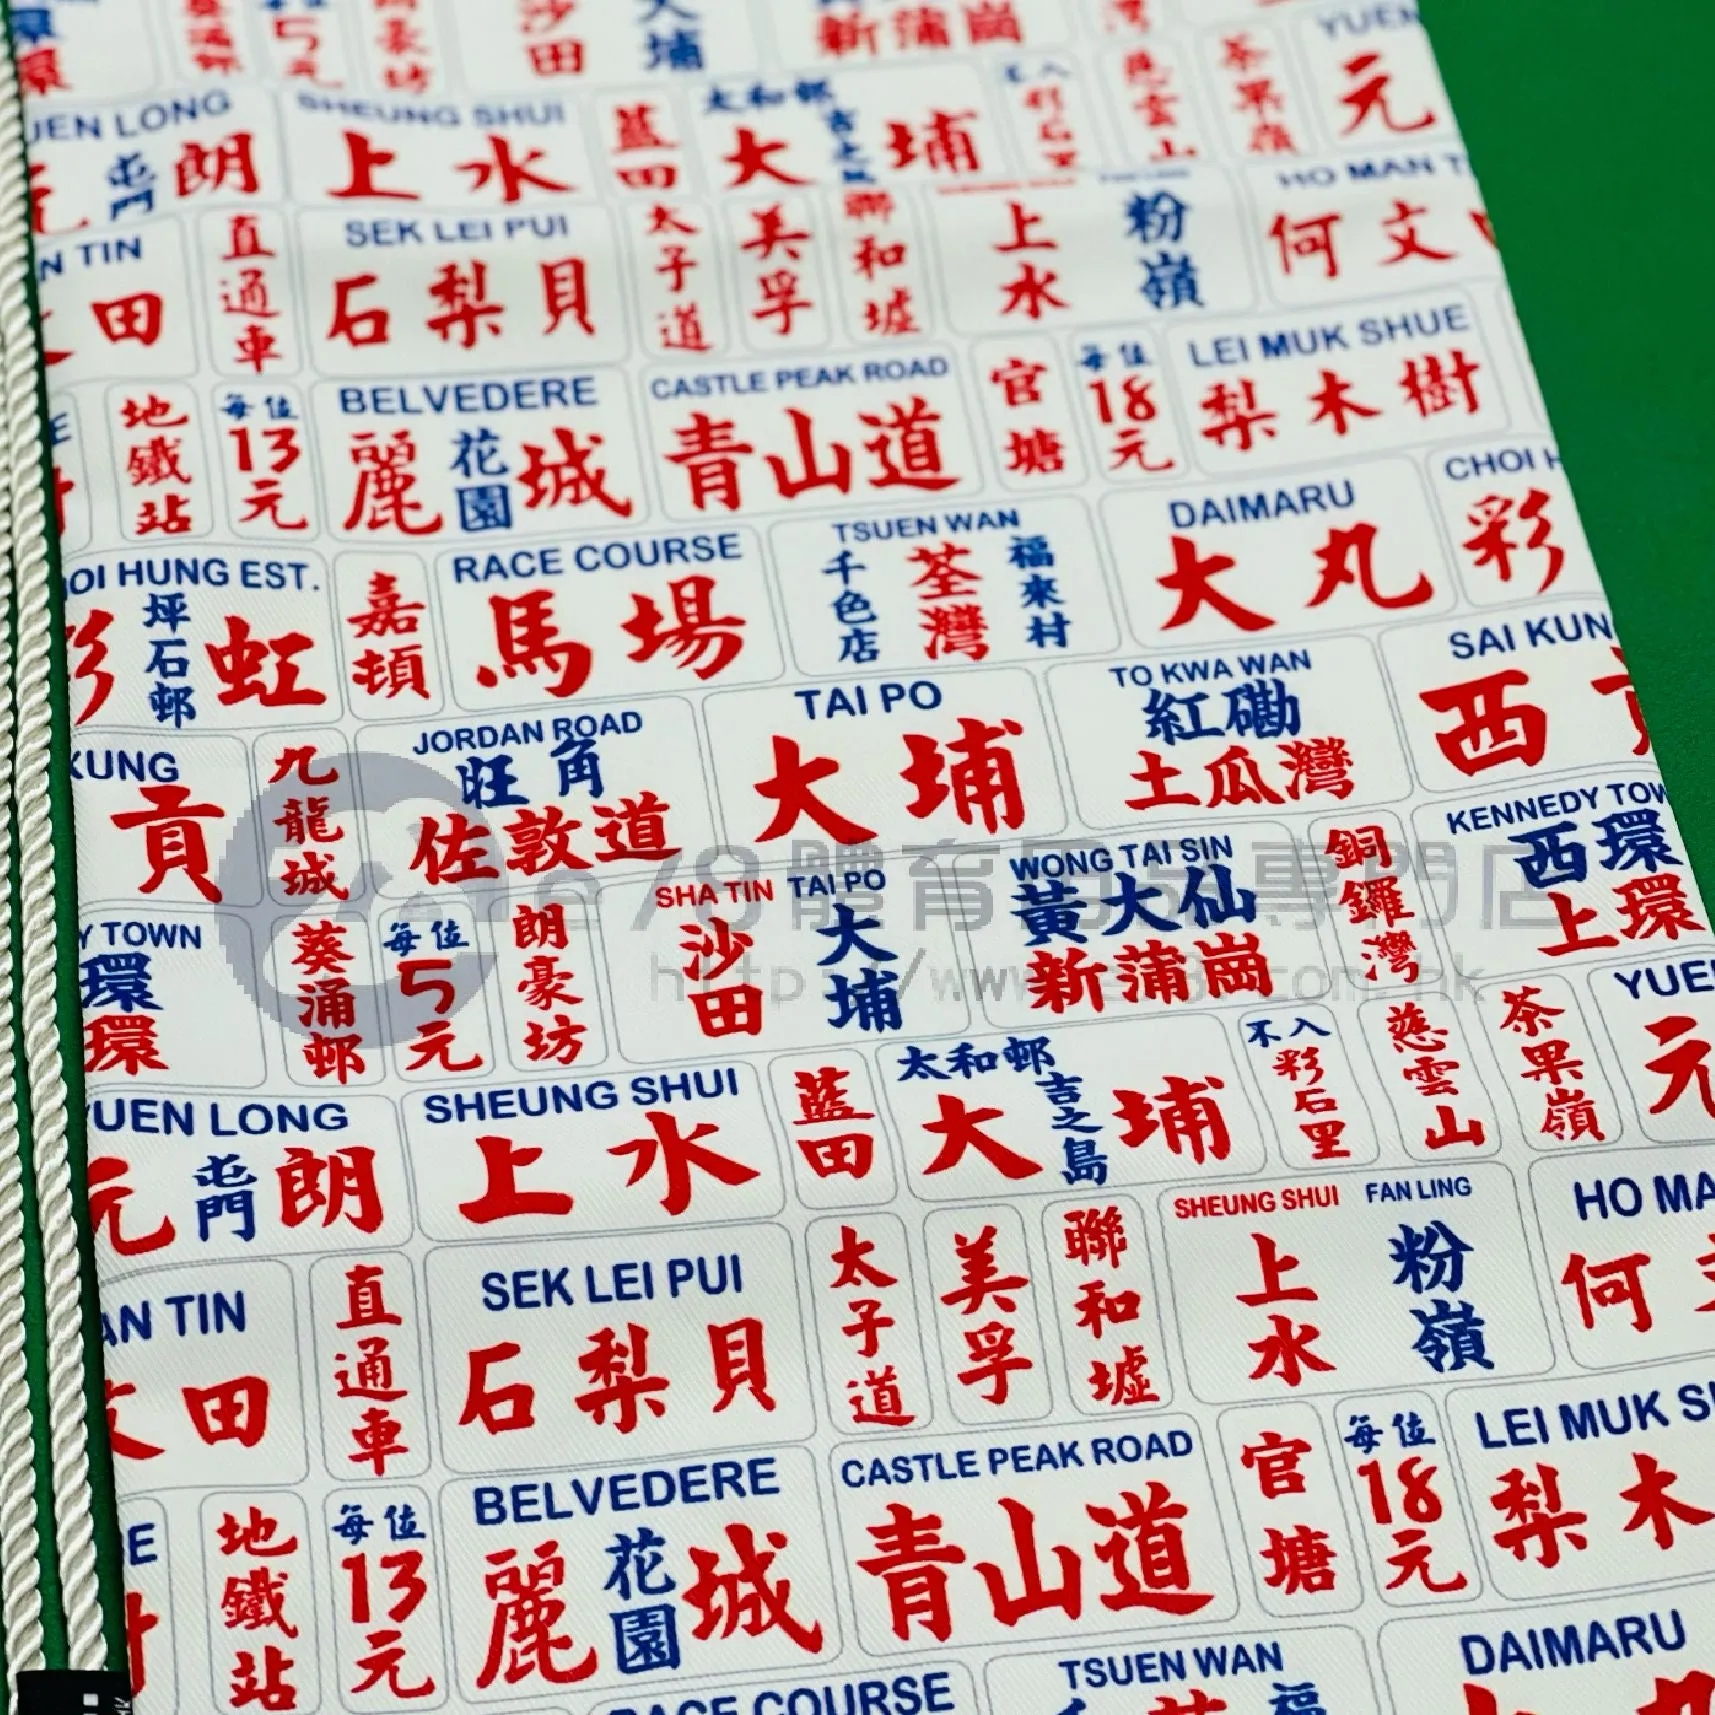 沙田
大埔
新蒲崗
YUEN
元
UEN LONG
屯門
朗
SHEUNG SHUI
上水
藍田
太和邨
吉之島
大埔
不入
彩石里
慈雲山
茶果嶺
N TIN
田
直通車
SEK LEI PUI
石梨貝
太子道
美孚
聯和墟
上水
粉嶺
HO MAN T
何文
地鐵站
每位
13
元
BELVEDERE
麗城
花園
CASTLE PEAK ROAD
青山道
官塘
每位
18
元
LEI MUK SHUE
梨木樹
OI HUNG EST.
坪石邨
虹
嘉頓
RACE COURSE
馬場
TSUEN WAN
千色店
荃灣
福來村
DAIMARU
大丸
CHOI H
彩
KUNG
貢
九龍城
JORDAN ROAD
旺角
佐敦道
TAI PO
大埔
TO KWA WAN
紅磡
土瓜灣
SAI KUN
西
Y TOWN
環
環
葵涌邨
每位
5
元
朗豪坊
SHA TIN
沙田
TAI PO
大埔
WONG TAI SIN
黃大仙
新蒲崗
銅鑼灣
KENNEDY TOW
西環
上環
YUEN LONG
元朗
屯門
SHEUNG SHUI
上水
藍田
太和邨
吉之島
大埔
不入
彩石里
慈雲山
茶果嶺
YUE
元
AN TIN
文田
直通車
SEK LEI PUI
石梨貝
太子道
美孚
聯和墟
SHEUNG SHUI
上水
FAN LING
粉嶺
HO MA
何
地鐵站
每位
13
元
BELVEDERE
麗城
花園
CASTLE PEAK ROAD
青山道
官塘
每位
18
元
LEI MUK S
梨木
RACE COURSE
TSUEN WAN
DAIMARU
e78體育用品專門店